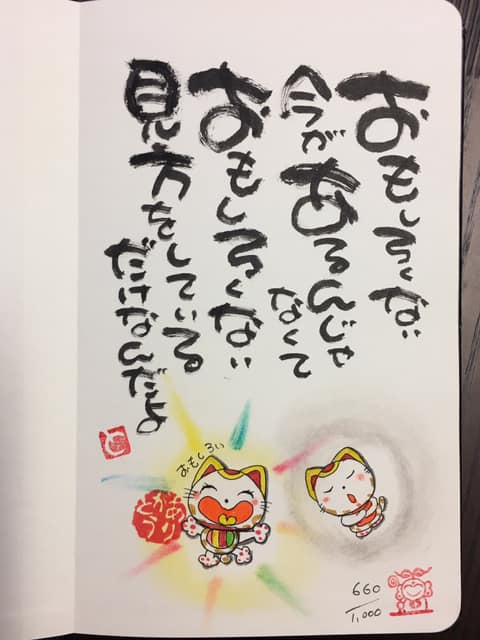 おもしろくない
今があるんじゃ
なくて
おもしろくない
見方をしている
だけなんだよ
おもしろい
ありがとう
660
1,000